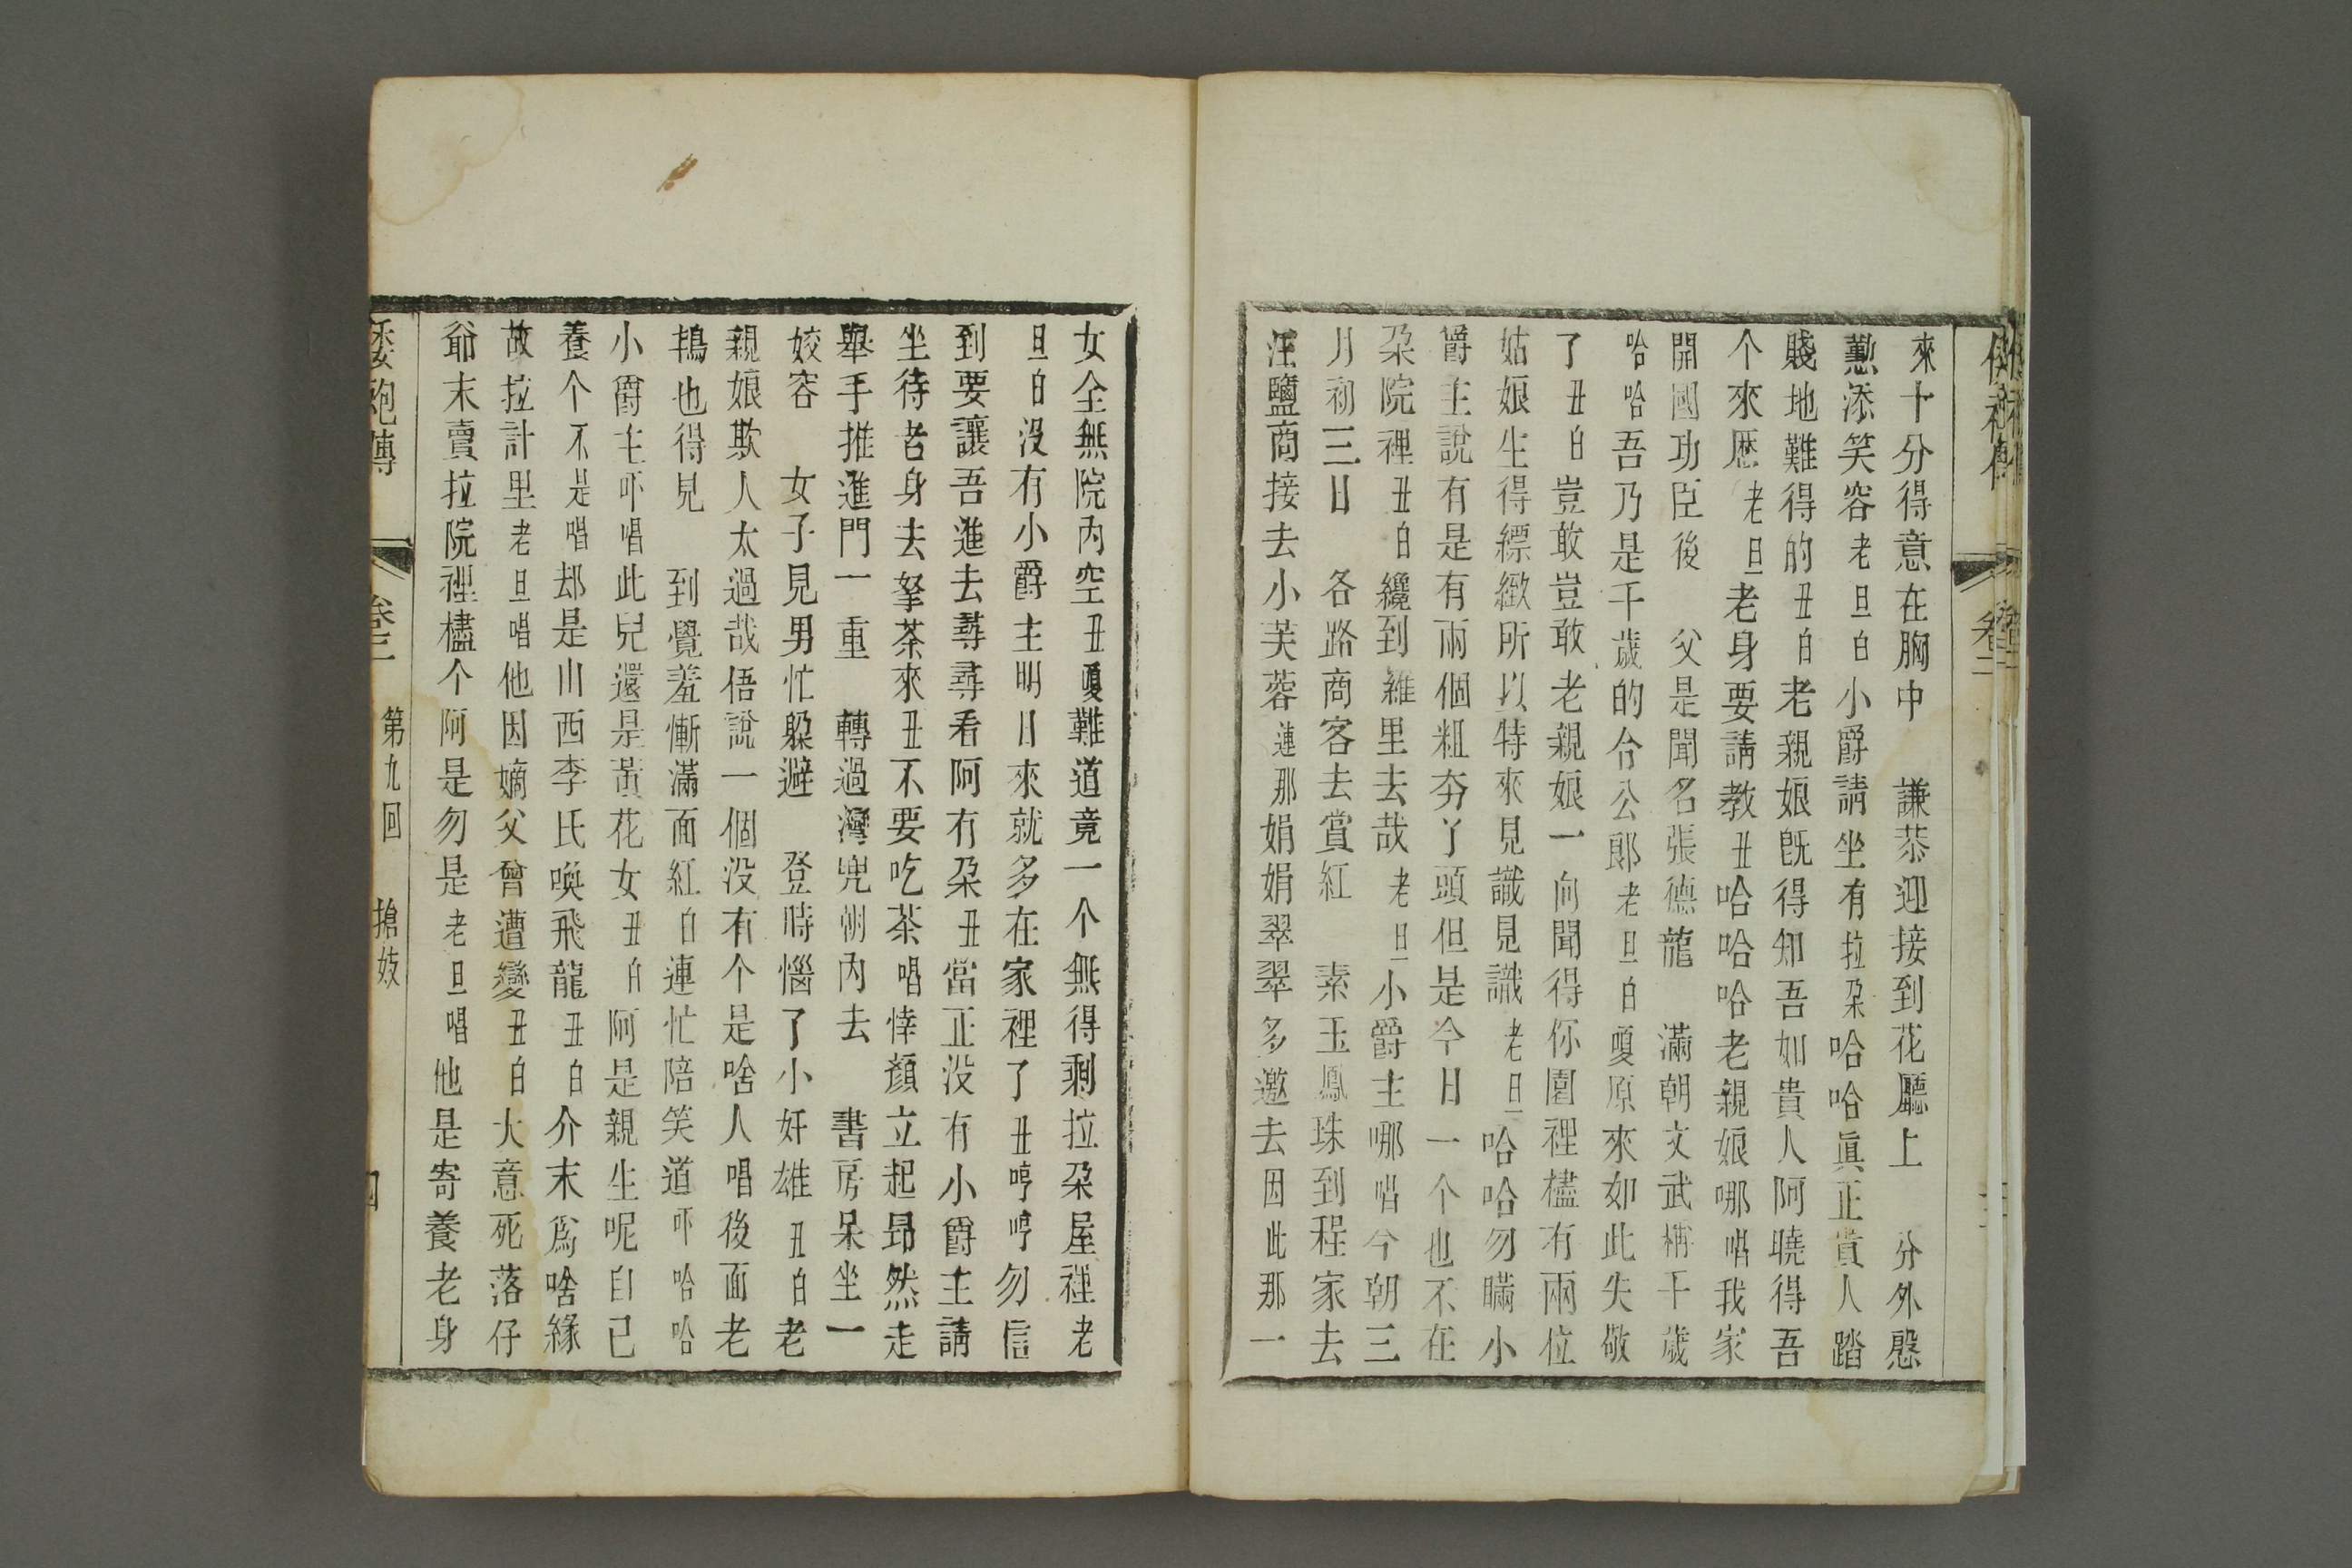 來十分得意在胸中　謙恭迎接到花廳上　分外慇
懃添笑容老旦白小爵請坐有拉朶哈哈眞正貴人踏
賤地難得的丑白老親娘旣得知吾如貴人阿曉得吾
个來歷老旦老身要請教丑哈哈哈老親娘哪唱我家
開國功臣後　父是聞名張德龍　滿朝文武稱千歲
哈哈吾乃是千歲的台公郞老旦白嗄原來如此失敬
了丑白豈敢豈敢老親娘一向聞得你園裡櫨有兩位
姑娘生得縹緻所以特來見識見識老旦哈哈勿瞞小
爵主說有是有兩個粗夯丫頭但是今日一个也不在
朶院裡丑白纔到雜里去哉老旦小爵主哪唱今朝三
月初三日　各路商客去賞紅　素玉鳳珠到程家去
汪鹽商接去小芙蓉連那娟娟翠翠多邀去因此那一
倭袍傳　卷二
女全無院內空丑嗄難道竟一个無得剩拉朶屋裡老
旦白没有小爵主明日來就多在家裡了丑哼哼勿信
到要讓吾進去尋尋看阿有朶丑當正没有小爵主請
坐待老身去拏茶來丑不要吃茶唱悻顏立起昻然走
舉手推進門一重　轉過灣兜朝內去　書房呆坐一
姣容　女子見男忙躱避　登時惱了小奸雄丑白老
親娘欺人太過哉俉說一個没有个是啥人唱後面老
鴇也得見　到覺羞慚滿面紅白連忙陪笑道吓哈哈
小爵主吓唱此兒還是黃花女丑白阿是親生呢自己
養个不是唱却是山西李氏喚飛龍丑白介末爲啥緣
故拉計里老旦唱他因嫡父曾遭變丑白大意死落仔
爺末賣拉院裡櫨个阿是勿是老旦唱他是寄養老身
倭袍傳　卷二　第九回　搶妓　四